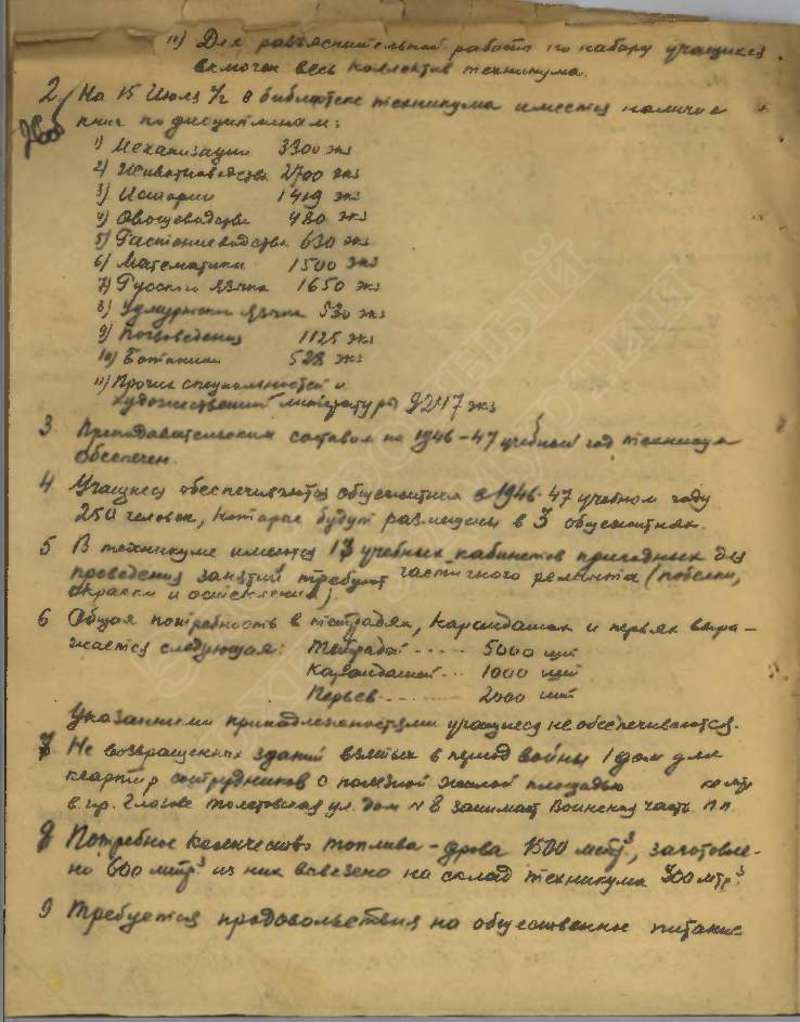 11) Для разъяснительной работы по набору учащихся
включен весь коллектив техникума.
2 На 15 Июля с/г в библиотеке техникума имеется наличие
книг по дисциплинам:
1) Механизации 3300 экз
2) Животноводства 2700 экз
3) Истории 1419 экз
4) Овощеводства 480 экз
5) Растениеводства 630 экз
6) Математики 1500 экз
7) Русского языка 1650 экз
8) Удмуртского языка 530 экз
9) Почвоведения 1125 экз
10) Ботаники 528 экз
11) Прочих специальностей и
художественной литературы 9217 экз
3 Преподавательским составом на 1946-47 учебный год техникум
обеспечен.
4 Учащиеся обеспечиваются общежитием в 1946-47 учебном году
250 человек, которые будут размещены в 3 общежитиях.
5 В техникуме имеются 13 учебных кабинетов пригодных для
проведения занятий требуют частичного ремонта (побелки,
окраски и остекления).
6 Общая потребность в тетрадях, карандашах и перьях выра-
жается следующая: Тетрадей ..... 5000 шт
Карандашей ... 1000 шт
Перьев ......... 2000 шт
Указанными принадлежностями учащиеся не обеспечиваются.
7 Не возвращенных зданий взятых в период войны 1 дом для
квартир сотрудников с полезной жилой площадью
в гор. Глазове Толстовская ул. дом № 8 занимает Воинская часть
8 Потребное количество топлива - дрова 1500 метр³, заготовле-
но 600 метр³ из них вывезено на склад техникума 300 мтр³
9 Требуется продовольствия на общественное питание